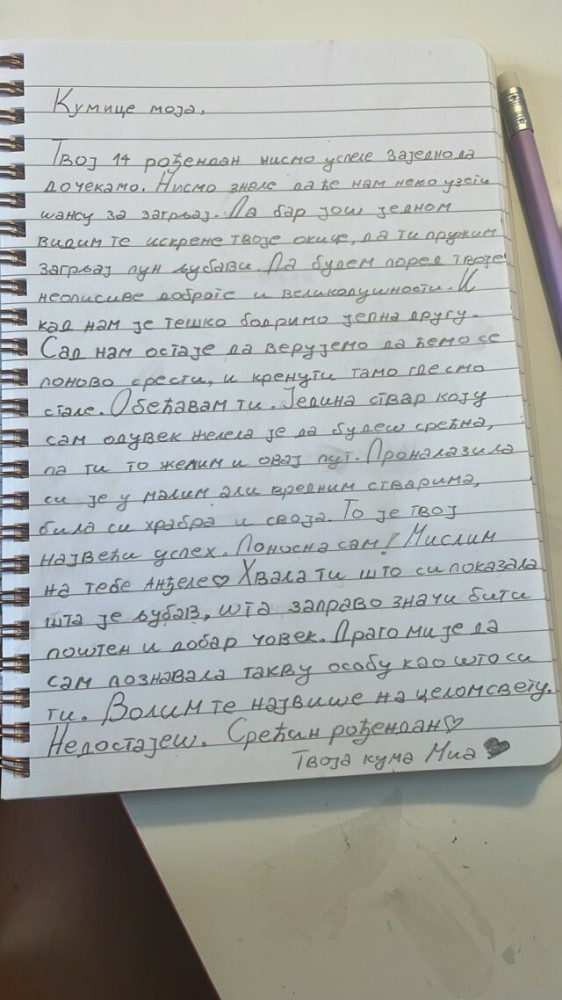 Кумице моја,
Твој 14 рођендан нисмо успеле заједно да
дочекамо. Нисмо знале да ће нам неко узети
шансу за загрљај. Да бар још једном
видим те искрене твоје окице, да ти пружим
загрљај пун љубави. Да будем поред твоје
неописиве доброте и великодушности. И
кад нам је тешко бодримо једна другу.
Сад нам остаје да верујемо да ћемо се
поново срести, и кренути тамо где смо
стале. Обећавам ти. Једина ствар коју
сам одувек желела је да будеш срећна,
па ти то желим и овај пут. Проналазила
си је у малим али вредним стварима,
била си храбра и своја. То је твој
највећи успех. Поносна сам! Мислим
на тебе анђеле♡ Хвала ти што си показала
шта је љубав, шта заправо значи бити
поштен и добар човек. Драго ми је да
сам познавала такву особу као што си
ти. Волим те највише на целом свету.
Недостајеш. Срећан рођендан♡
Твоја кума Миа ♥